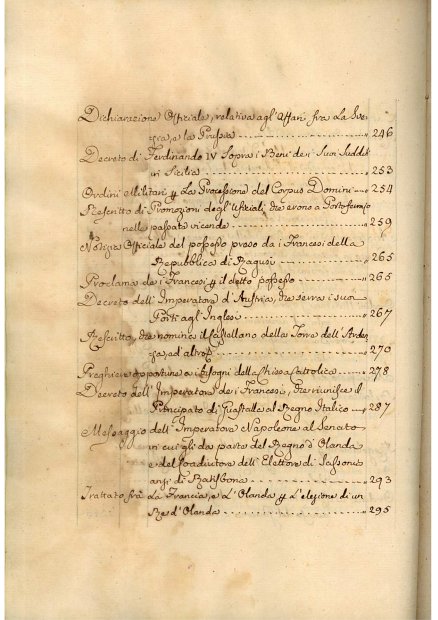 Dichiarazione Officiale, relativa agl'Affari fra La Sve-
zia, e la Prussia - - - - - - - - - - - - - „ 246
Decreto di Ferdinando IV Sopra i Beni dei Suoi Sudditi
in Sicilia - - - - - - - - - - - - - „ 253
Ordini Militari p La Processione del Corpus Domini - „ 254
Rescritto di Promozioni degl'Ufiziali, che erono a Portoferrajo
nelle passate vicende - - - - - - - - - „ 259
Notizia Officiale del possesso preso da i Francesi della
Repubblica di Ragusi - - - - - - - - - „ 265
Proclama de i Francesi p il detto possesso - - - - „ 265
Decreto dell'Imperatore d'Austria, che serra i suoi
Porti agl'Inglesi - - - - - - - - - - „ 267
Rescritto, che nomina il Castellano della Torre dell'Arden-
za, ed altro - - - - - - - - - - - „ 270
Preghiere opportune a i bisogni della Chiesa Cattolica - - - „ 278
Decreto dell'Imperatore de i Francesi, che riunisce il
Principato di Guastalla al Regno Italico - - - „ 287
Messaggio dell'Imperatore Napoleone al Senato
in cui gli da parte del Regno d'Olanda
e del Coadiutore dell'Elettore di
di Ratisbona - - - - - - - - - - - „ 293
Trattato fra La Francia, e L'Olanda p L'elezione di un
Re d'Olanda - - - - - - - - - - - - „ 295